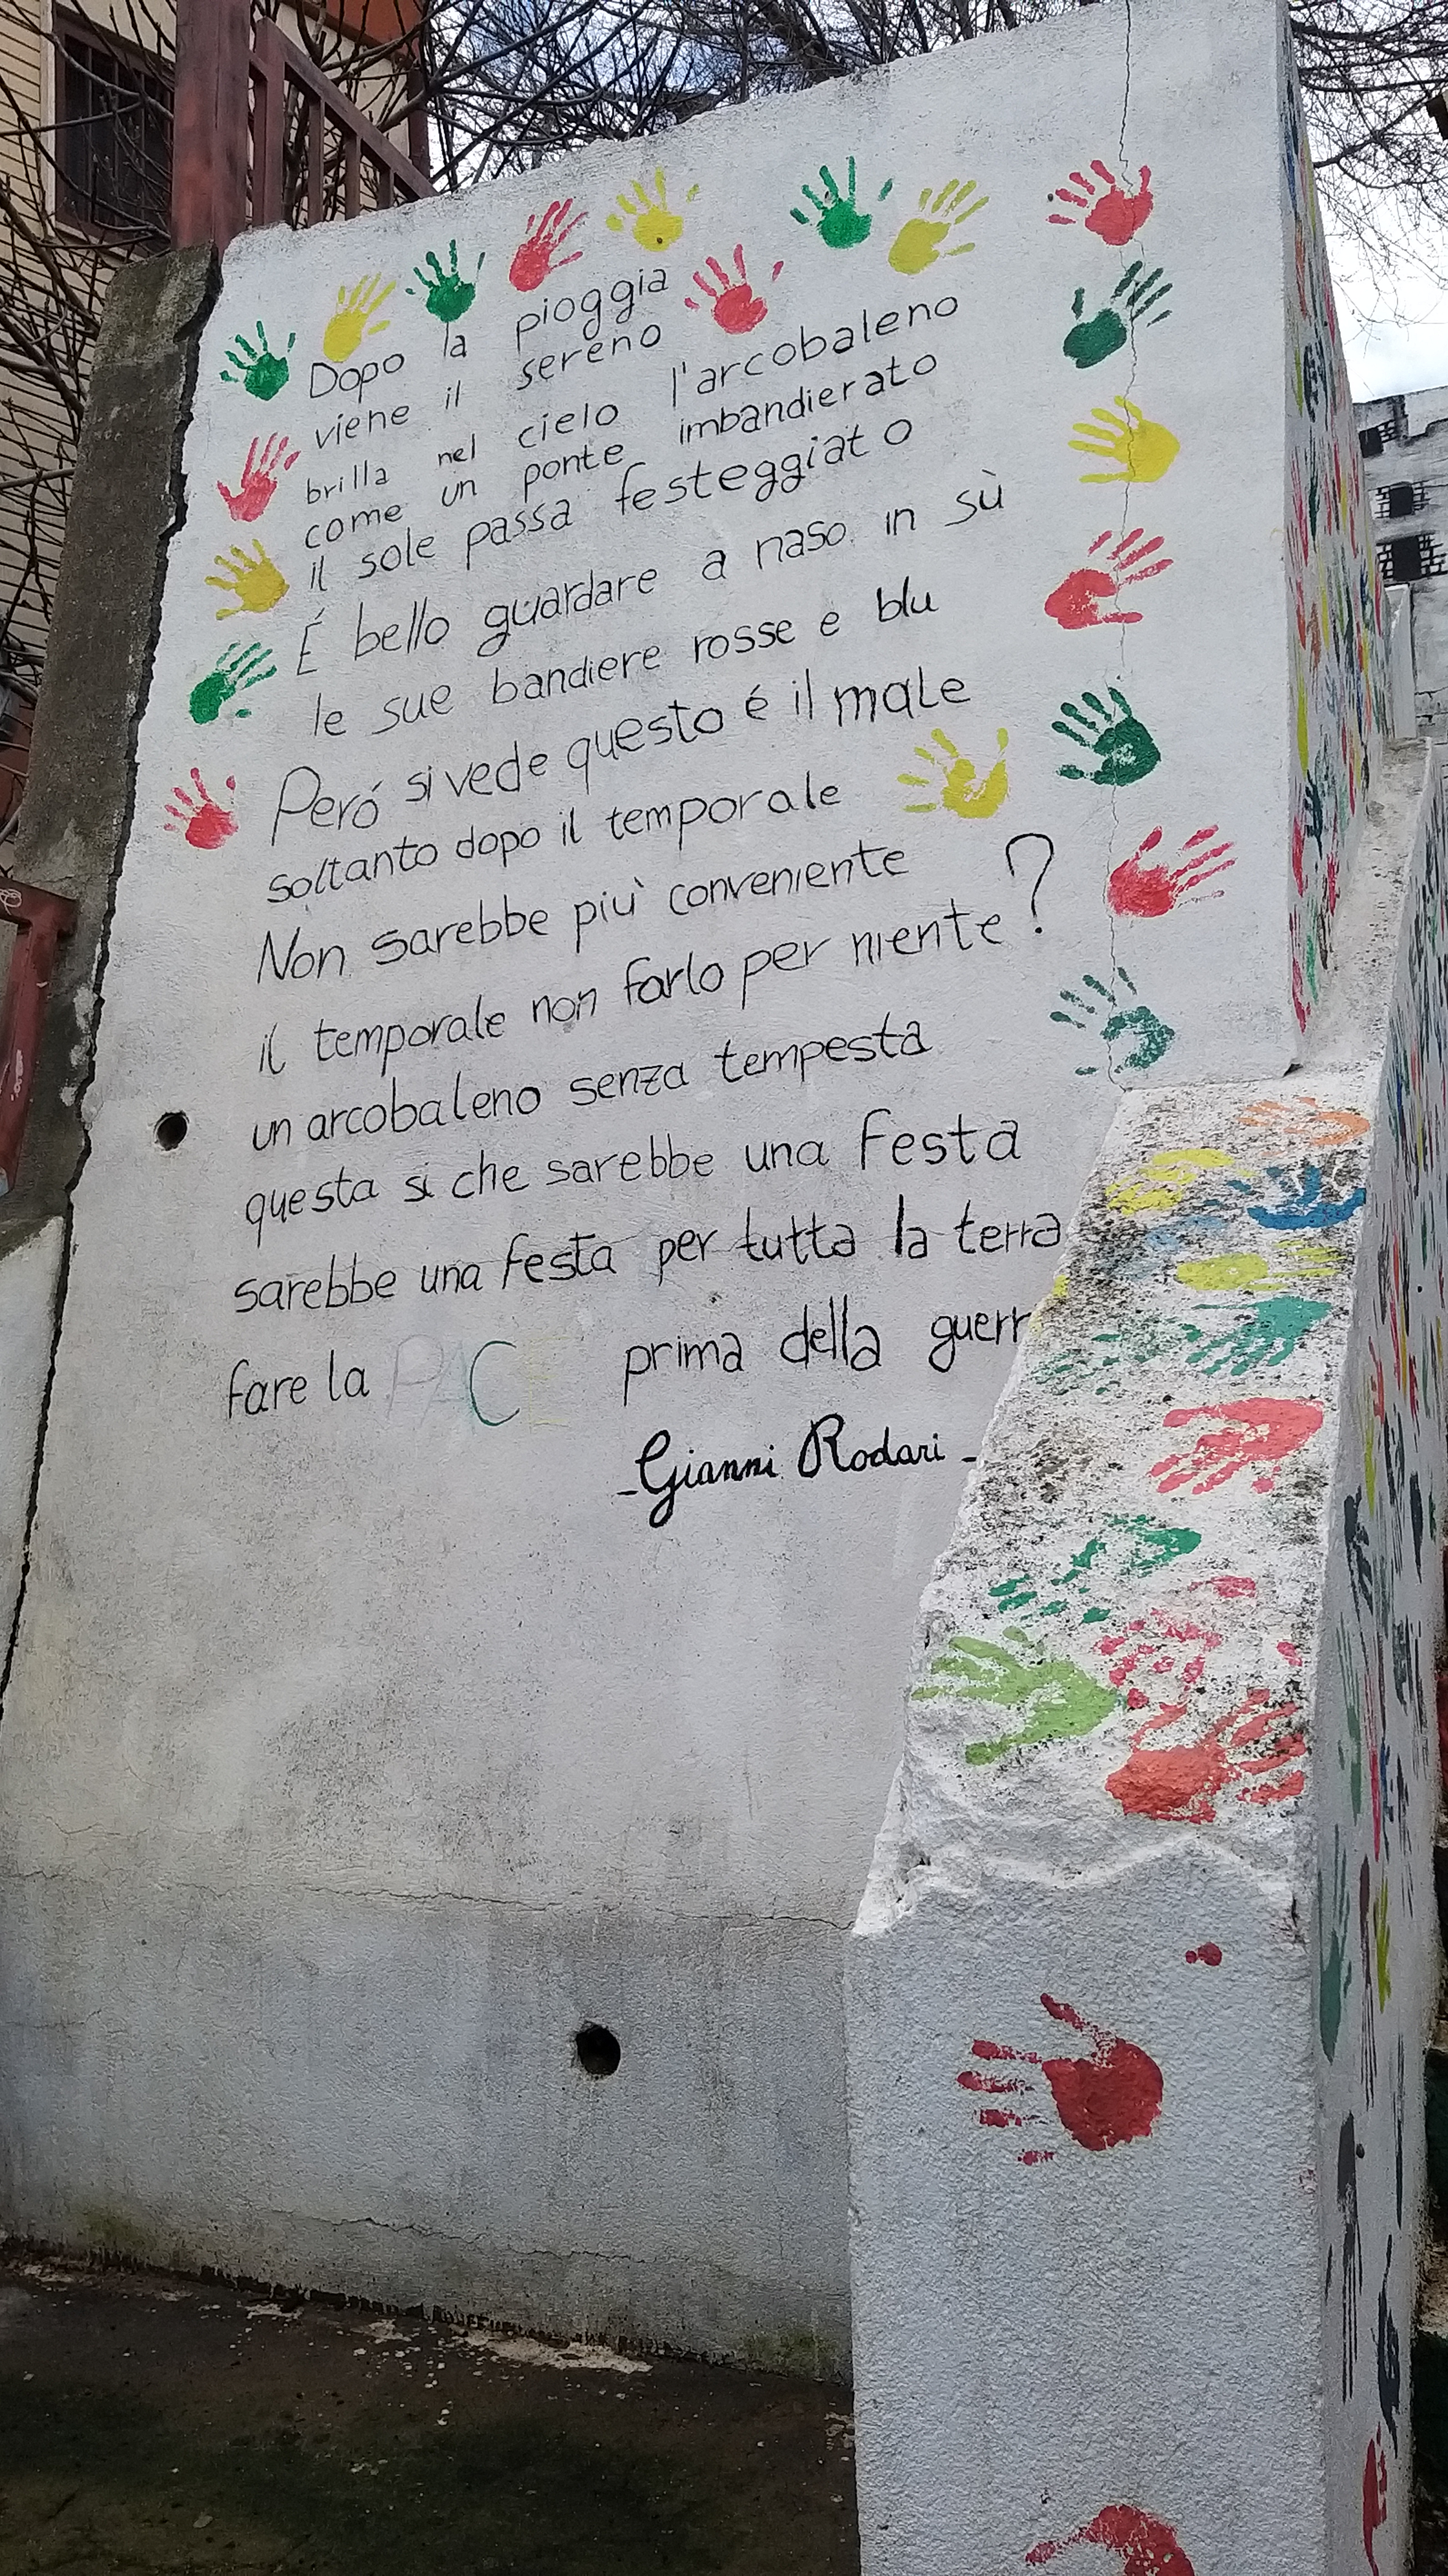 Dopo la pioggia
viene il sereno
brilla nel cielo l'arcobaleno
come un ponte imbandierato
il sole passa festeggiato
É bello guardare a naso in sù
le sue bandiere rosse e blu
Peró si vede questo é il male
soltanto dopo il temporale
Non sarebbe più conveniente
il temporale non farlo per niente?
un arcobaleno senza tempesta
questa si che sarebbe una festa
sarebbe una festa per tutta la terra
fare la PACE prima della guerr
- Gianni Rodari -